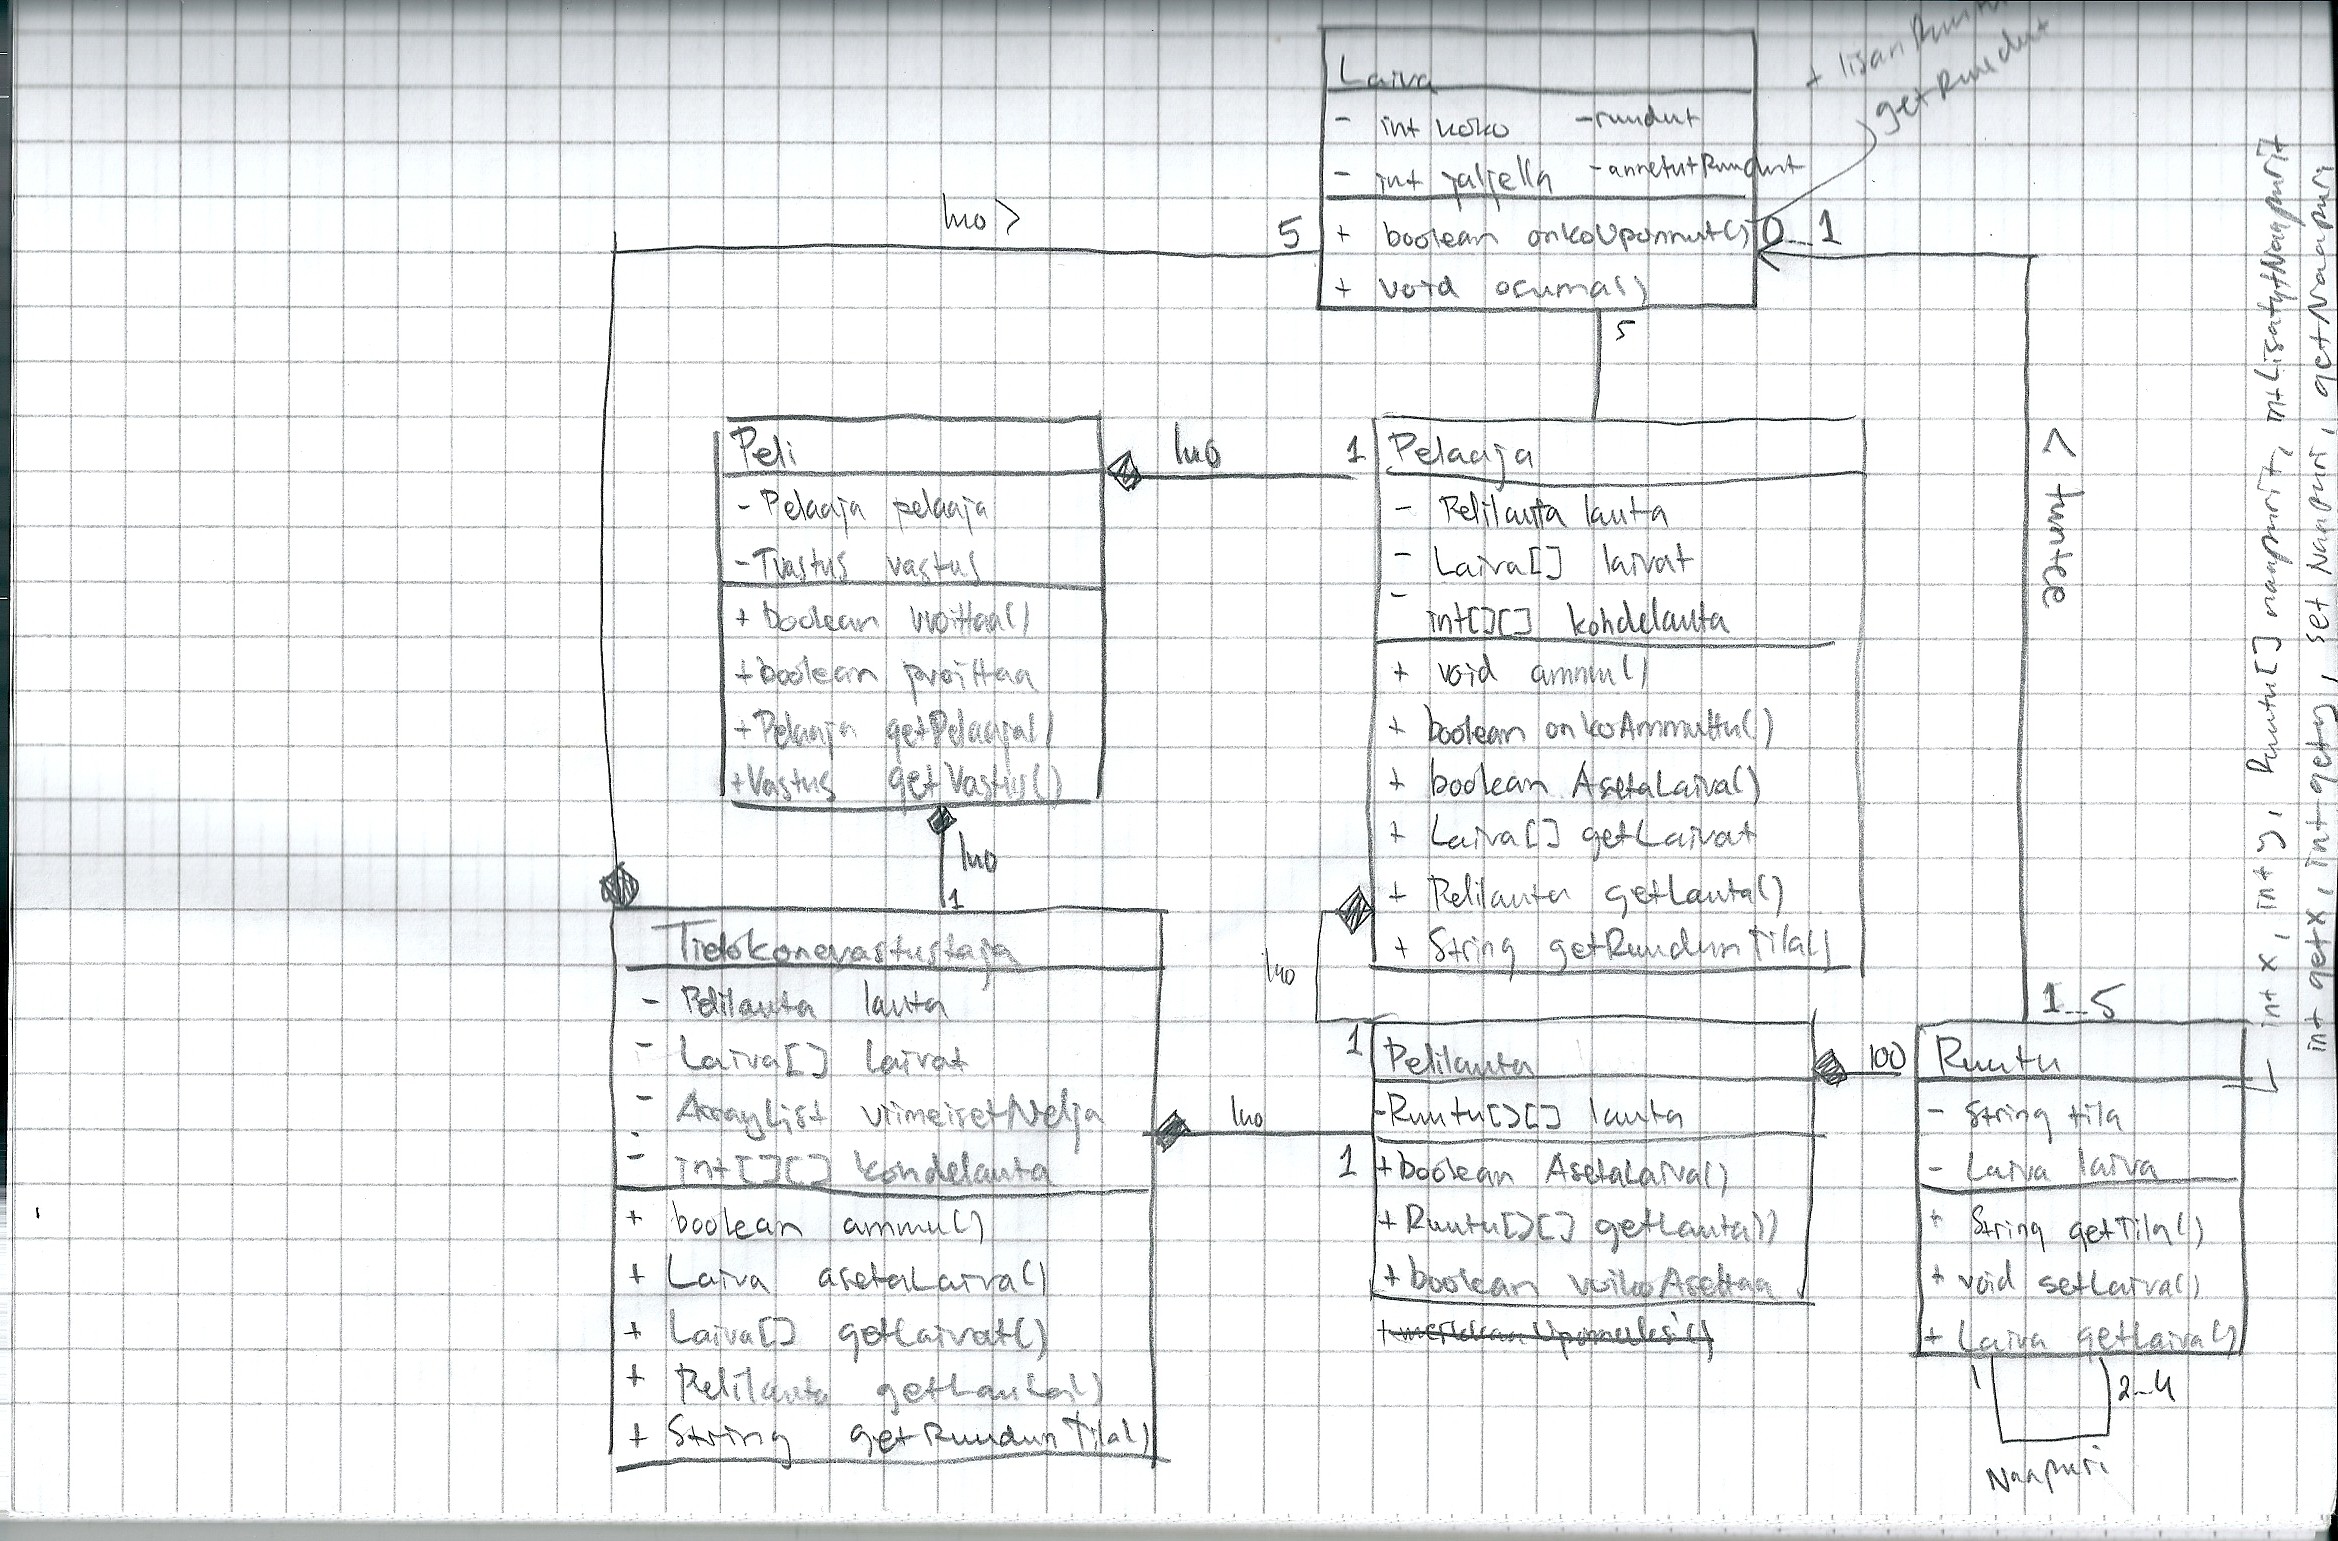 Laiva
- int koko -ruudut
- int jäljellä -annetutRuudut
+ boolean onkoUponnut()
+ void osuma()
getRuudut
luo >
5
0..1
5
Peli
- Pelaaja pelaaja
- Tvastus vastus
+ boolean voittaa()
+ boolean
+ Pelaaja getPelaaja()
+ Vastus getVastus()
luo
1
Pelaaja
- Pelilauta lauta
- Laiva[] laivat
-
int[][] kohdelauta
+ void ammu()
+ boolean onkoAmmuttu()
+ boolean AsetaLaiva()
+ Laiva[] getLaivat
+ Pelilauta getLauta()
+ String getRuudunTila()
tuntee >
luo
1
luo
Tietokonevastustaja
- Pelilauta lauta
- Laiva[] laivat
- ArrayList viimeisetNeljä
- int[][] kohdelauta
+ boolean ammu()
+ Laiva asetaLaiva()
+ Laiva[] getLaivat()
+ Pelilauta getLauta()
+ String getRuudunTila()
luo
1
1
Pelilauta
- Ruutu[][] lauta
+ boolean AsetaLaiva()
+ Ruutu[][] getLauta()
+ boolean voikoAsettaa
100
1..5
Ruutu
- String tila
- Laiva laiva
+ String getTila()
+ void setLaiva()
+ Laiva getLaiva()
1
2..4
Naapuri
int x, int y, Ruutu[] naapurit, int LisatytNaapurit
int getX, int getY, setNaapuri, getNaapuri